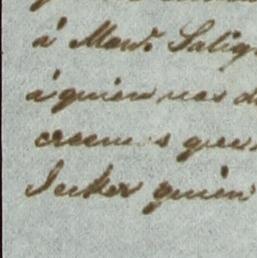 á Monr. Salig
á quien nos d
creemos que
Jecker quien